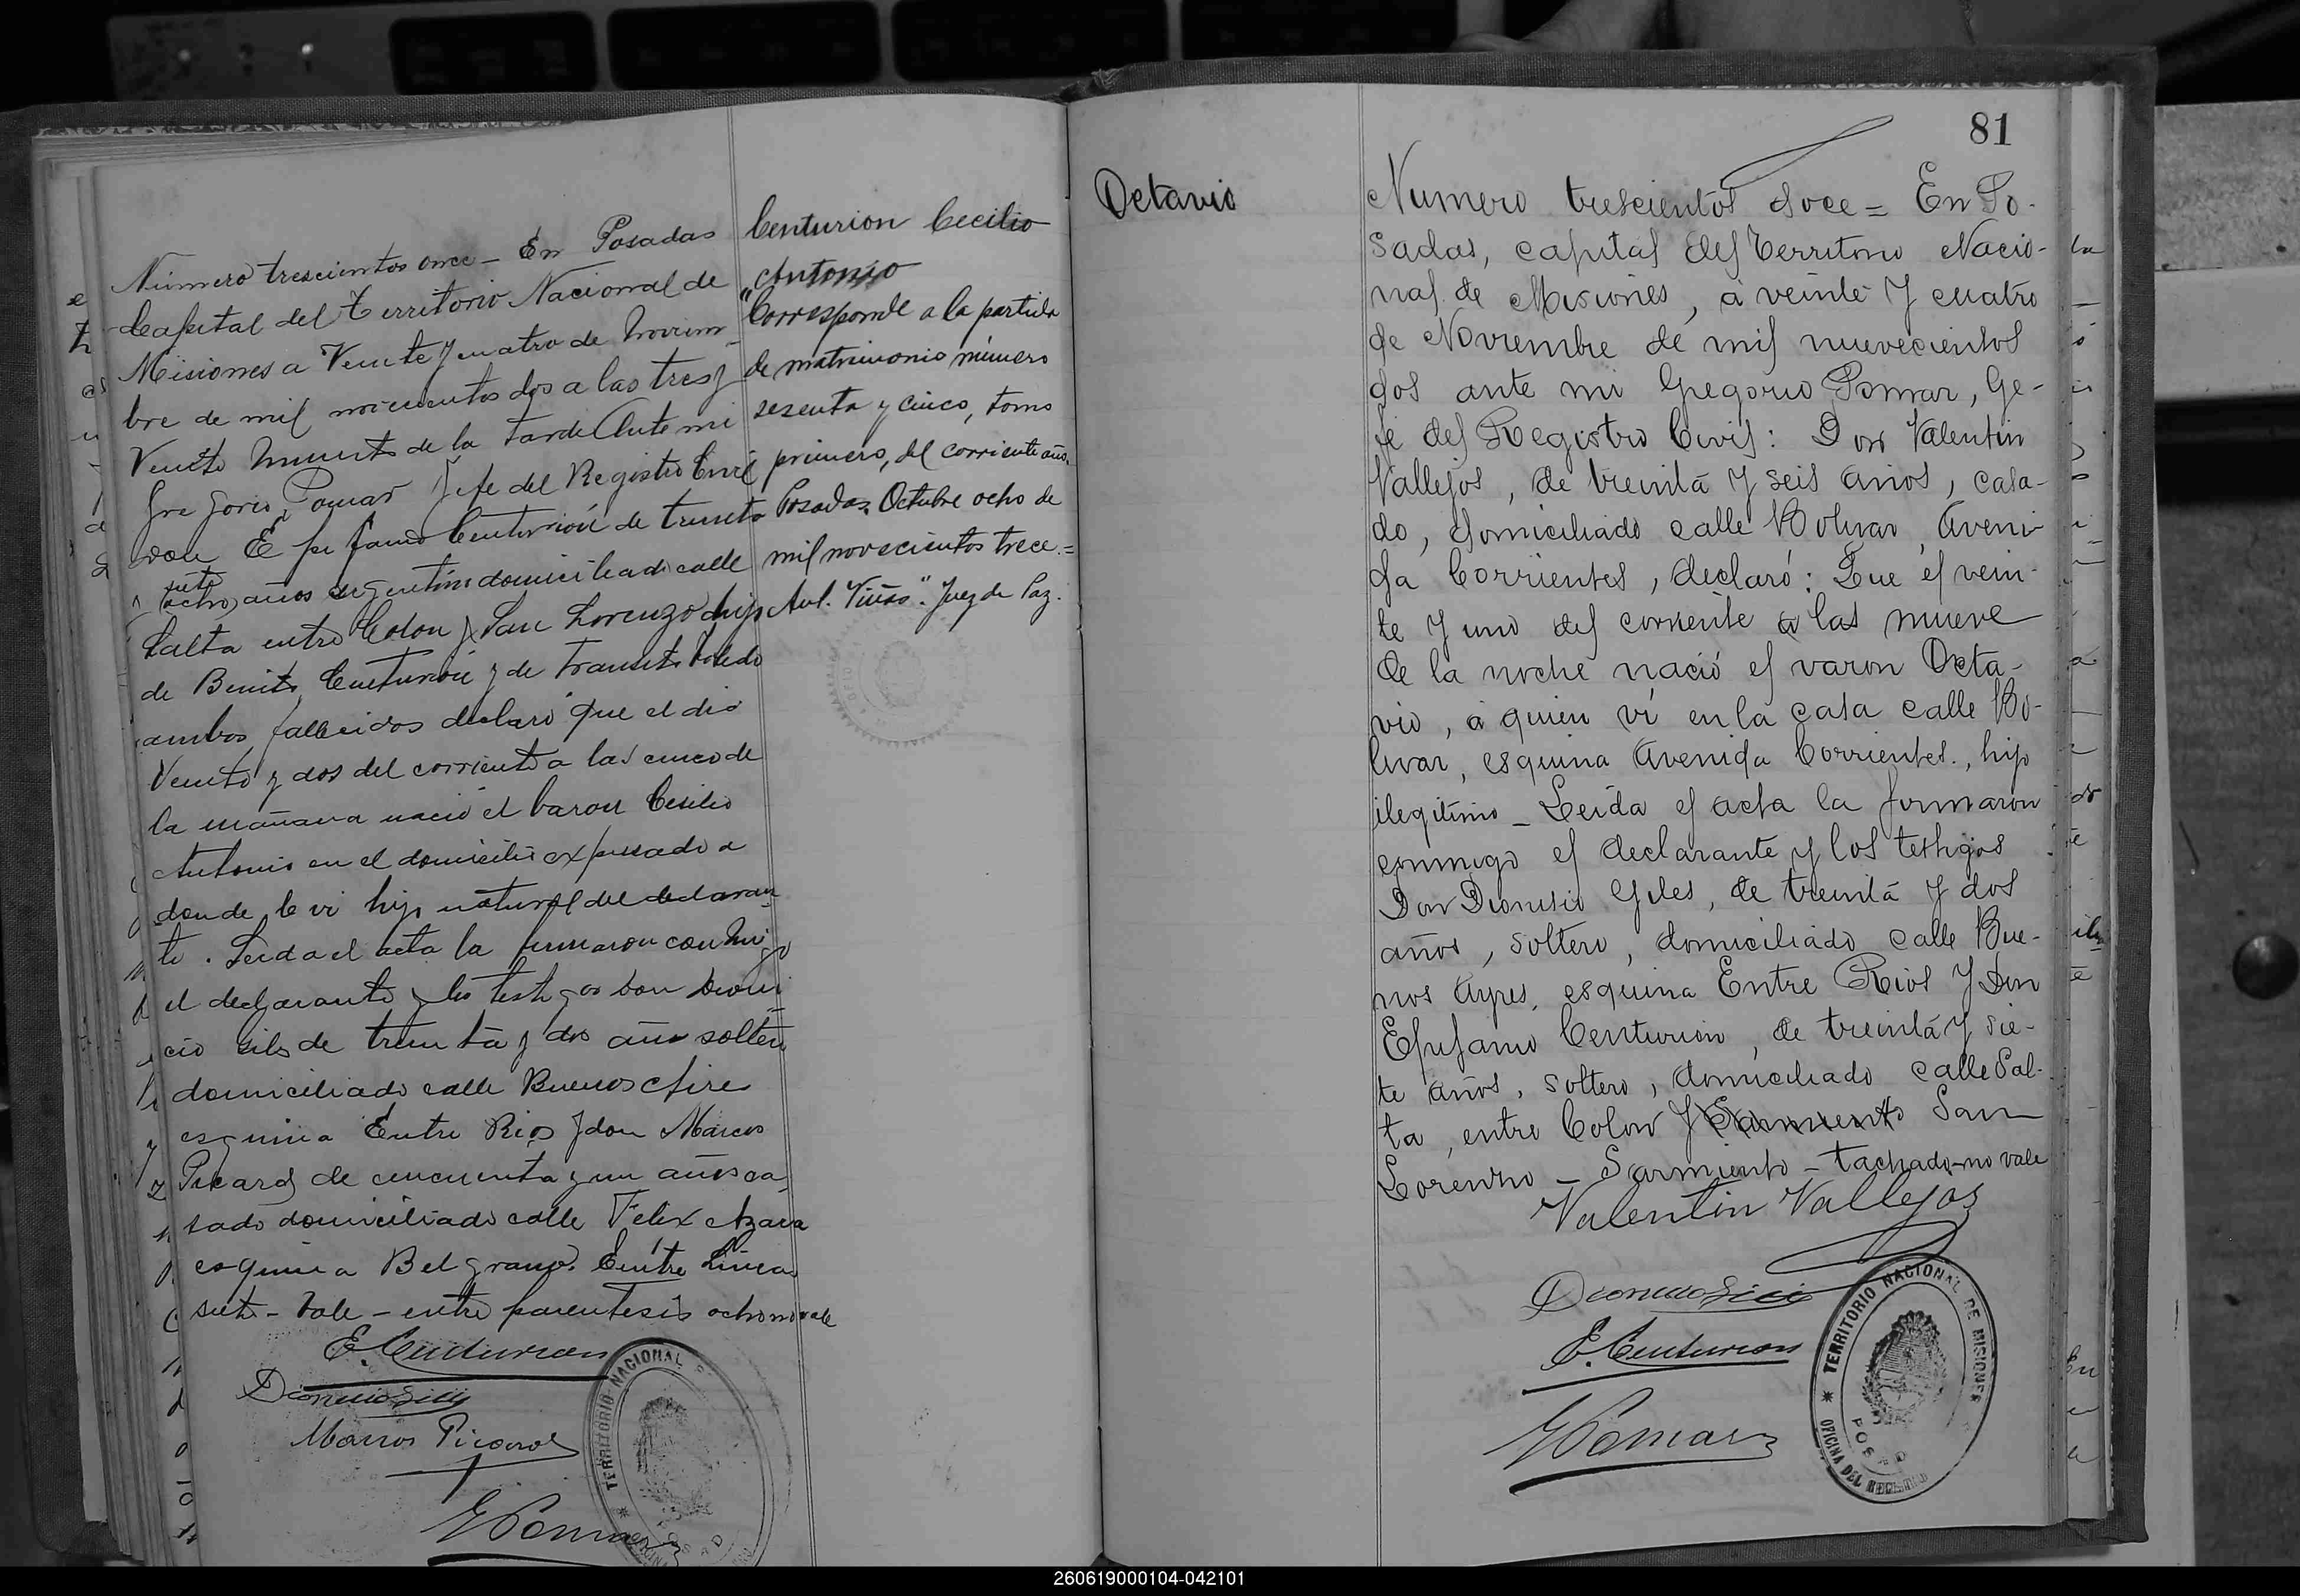 Número trescientos once - En Posadas
Capital del Territorio Nacional de
Misiones a Veinte y cuatro de Noviem-
bre de mil novecientos dos a las tres y
Veinte minutos de la tarde Ante mi
Gregorio Pomar Jefe del Registro Civil
don Epifanio Centurión de treinta
siete
(ocho) años argentino domiciliado calle
Salta entre Colon y San Lorenzo hijo
de Benito Centurión y de Transito Toledo
ambos fallecidos declaró que el dia
Veinte y dos del corriente a las cinco de
la mañana nació el baron Cesilio
Antonio en el domicilio expresado a
donde le vi hijo natural del declaran-
te. Leida el acta la firmaron conmigo
el declarante y los testigos don Dioni
cio Giles de treinta y dos años soltero
domiciliado calle Buenos Aires
esquina Entre Rios y don Marcos
Picard de cincuenta y un años ca-
sado domiciliado calle Felix Azara
esquina Belgrano. Entre Linea
siete - Vale - entre parentesis ocho no vale
E. Centurion
Dionicio Giles
Marcos Picard
G Pomar
TERRITORIO NACIONAL
Centurion Cecilio
Antonio
"Corresponde a la partida
de matrimonio número
sesenta y cinco, tomo
primero, del corriente año.
Posadas, Octubre ocho de
mil novecientos trece.=
Ant. Viñas". Juez de Paz.
81
Octavio
Numero trescientos doce = En Po-
sadas, capital del Territorio Nacio-
nal de Misiones, à veinte y cuatro
de Noviembre de mil nuevecientos
dos ante mi Gregorio Pomar, Ge-
fe del Registro Civil: Don Valentin
Vallejos, de treinta y seis años, casa-
do, domiciliado calle Bolivar, Aveni-
da Corrientes, declaró: Que el vein-
te y uno del corriente a las nueve
de la noche nació el varon Octa-
vio, à quien vi en la casa calle Bo-
livar, esquina Avenida Corrientes., hijo
ilegitimo _ Leida el acta la firmaron
conmigo el declarante y los testigos
Don Dionisio Giles, de treinta y dos
años, soltero, domiciliado calle Bue-
nos Ayres, esquina Entre Rios y Don
Epifanio Centurion, de treinta y sie-
te años, soltero, domiciliado calle Sal-
ta, entre Colon y Sarmiento San
Lorenzo _ Sarmiento - tachado - no vale
Valentin Vallejos
Dionicio Giles
E. Centurion
G Pomar
TERRITORIO NACIONAL DE MISIONES
OFICINA DEL REGISTRO
260619000104-042101